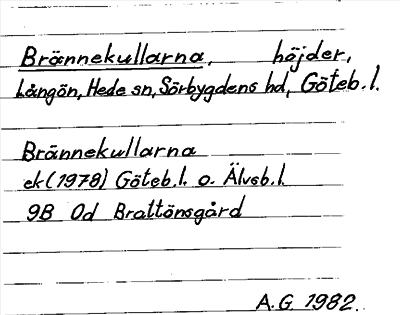 Brännekullarna, höjder,
Långön, Hede sn, Sörbygdens hd, Göteb.l.
Brännekullarna
ek (1978) Göteb.l. o. Älvsb.l.
9B 0d Brattönsgård
A.G. 1982.